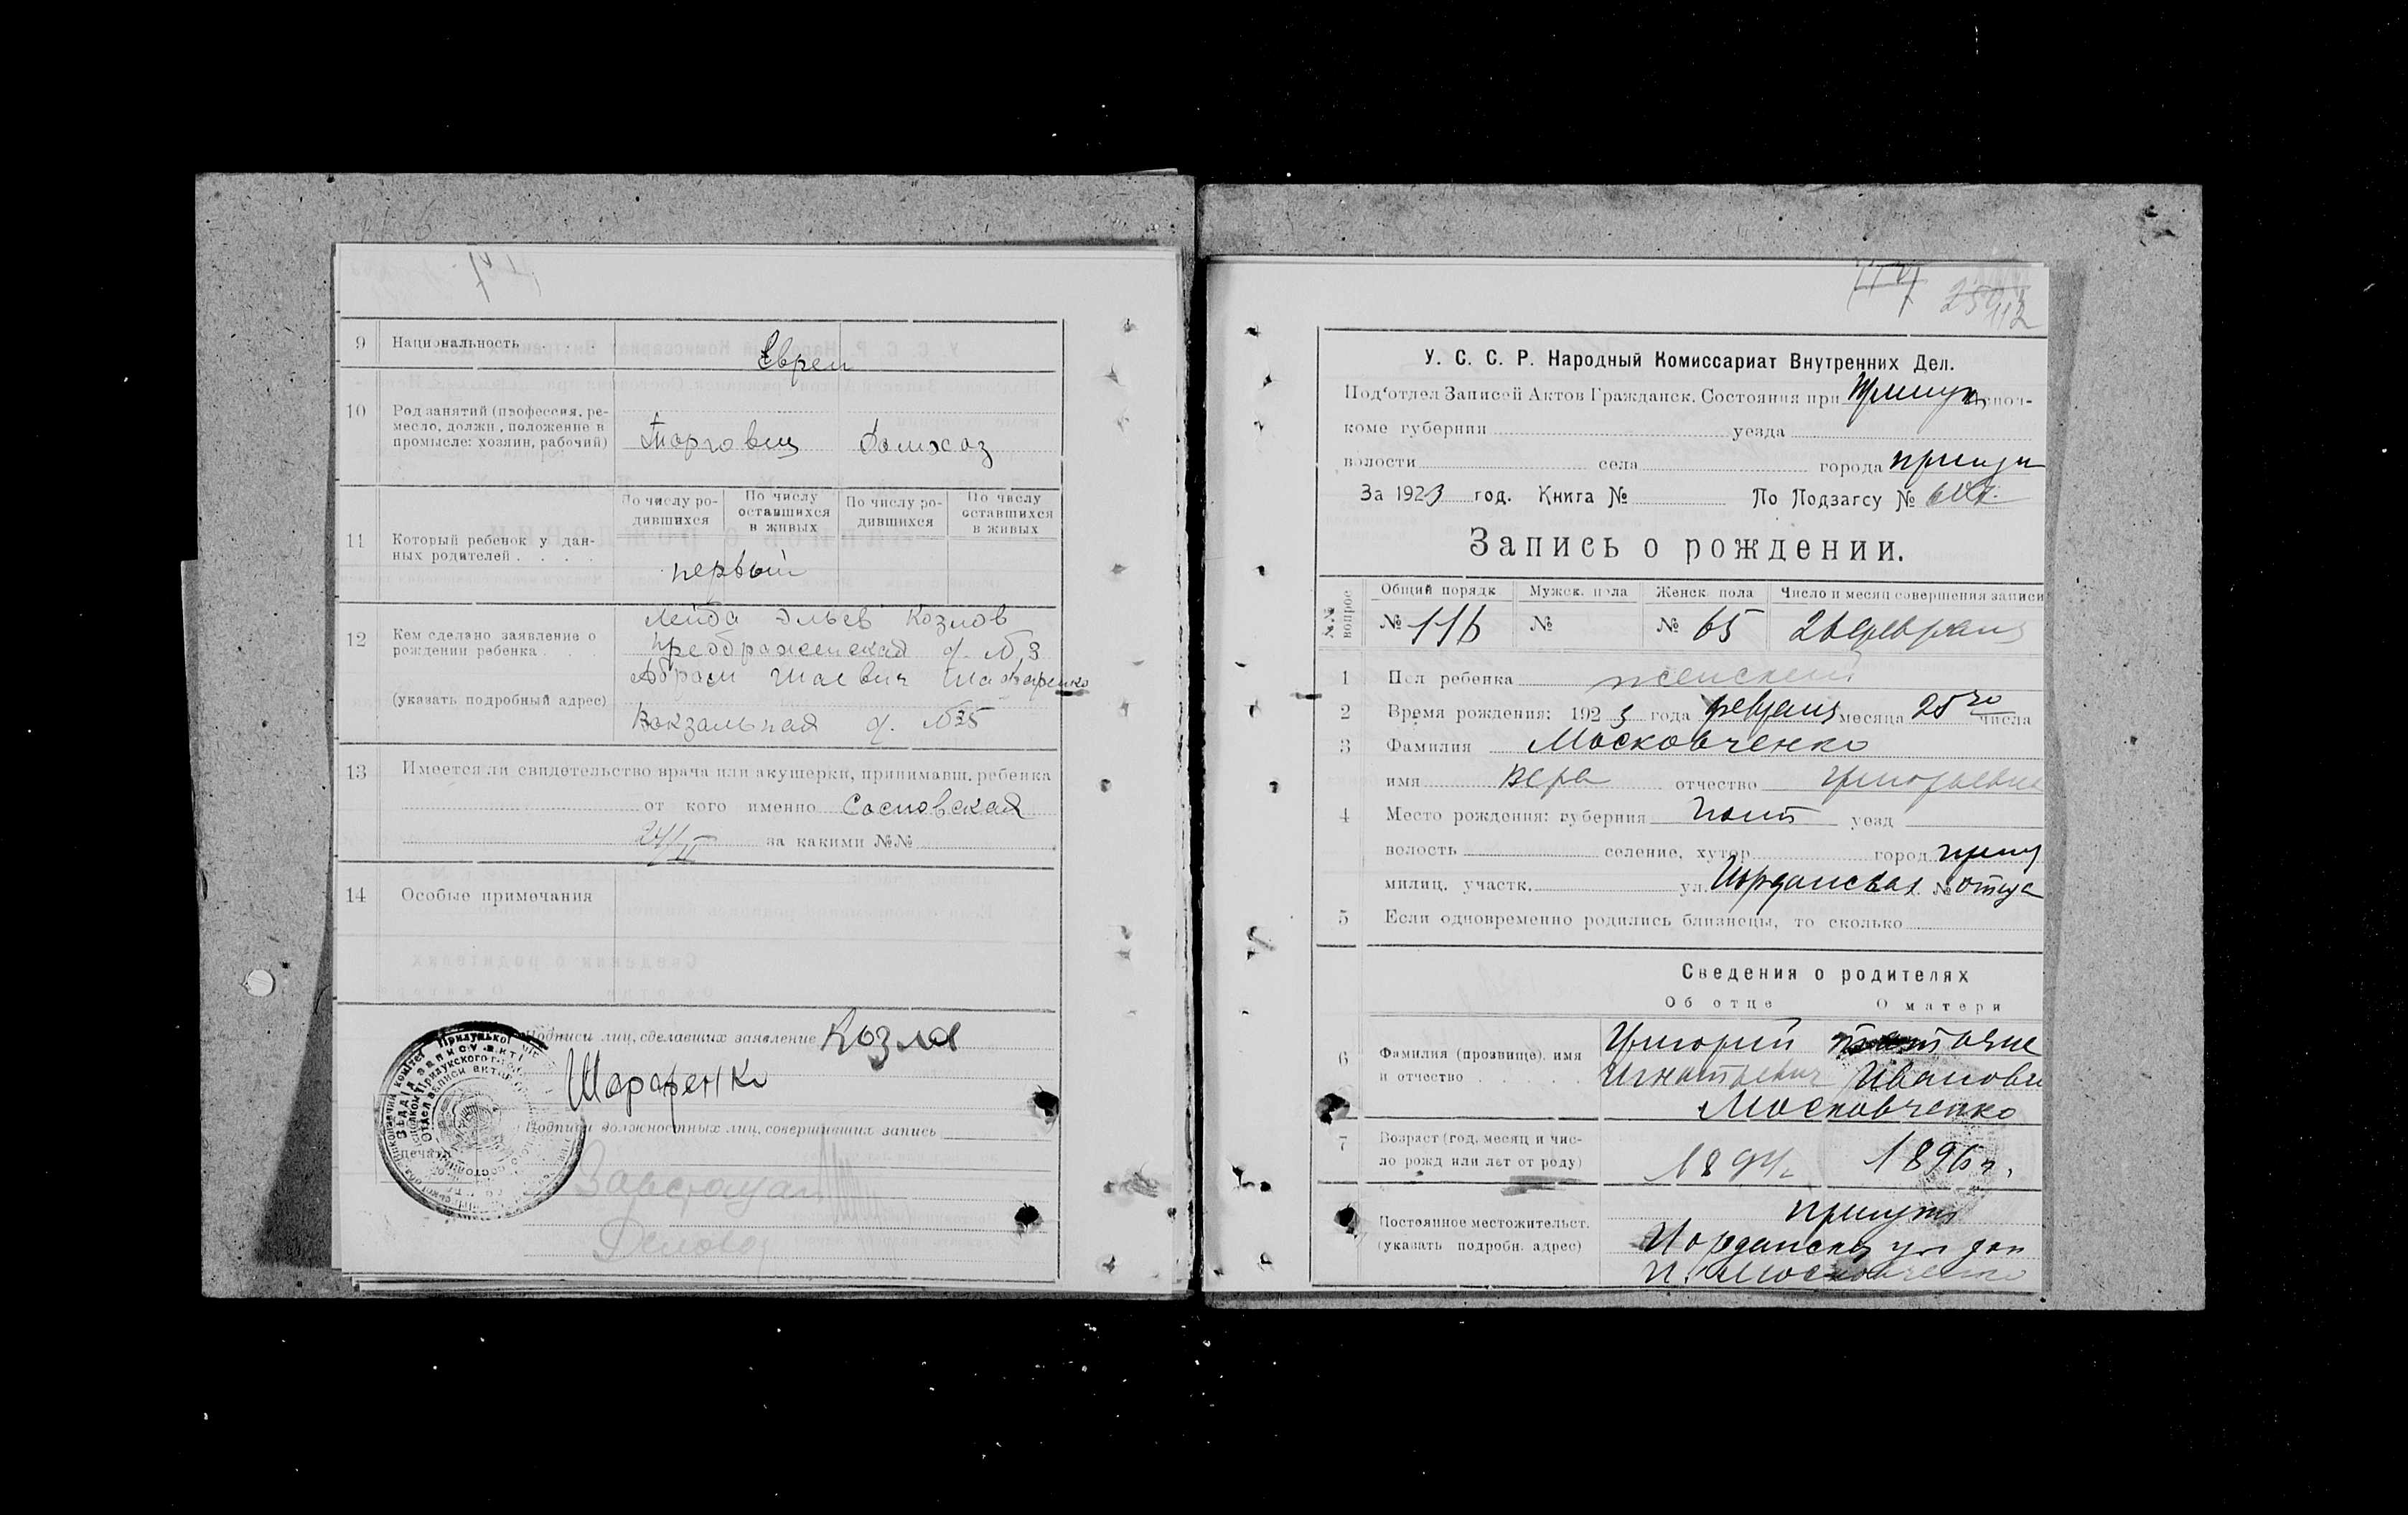 9 Национальность
Евреи
10 Род занятий (профессия, ре-
месло, должн., положение в
промысле: хозяин, рабочий)
Торговец Домхоз
По числу ро-
дившихся
По числу
оставшихся
в живых
По числу ро-
дившихся
По числу
оставшихся
в живых
11 Который ребенок у дан-
ных родителей
первый
12 Кем сделано заявление о
рождении ребенка
(указать подробный адрес)
Лейба Эльев Козлов
Преображенская д. №3
Абрам Шаевич Шафаренко
Вокзальная д. №35
13 Имеется ли свидетельство врача или акушерки, принимавш. ребенка
от кого именно Сосновская
24/II за какими №№
14 Особые примечания
Подписи лиц, сделавших заявление Козлов
Шафаренко
Подписи должностных лиц, совершивших запись
печать
117
112
У. С. С. Р. Народный Комиссариат Внутренних Дел.
Под'отдел Записей Актов Гражданск. Состояния при Прилук испол-
коме губернии уезда
волости села города Прилуки
За 1923 год. Книга № По Подзагсу №
Запись о рождении.
№№ вопрос
Общий порядк Мужск. пола Женск. пола Число и месяц совершения записи
№ 116 № № 65 26 февраля
1 Пол ребенка женский
2 Время рождения: 1923 года февраля месяца 25го числа
3 Фамилия Московченко
имя Вера отчество Григорьевна
4 Место рождения: губерния Полт уезд
волость селение, хутор город Прилу
милиц. участк. ул. Иорданская № отца
5 Если одновременно родились близнецы, то сколько
Сведения о родителях
Об отце О матери
6 Фамилия (прозвище), имя
и отчество
Григорий
Игнатьевич Ивановн
Московченко
7 Возраст (год, месяц и чис-
ло рожд или лет от роду)
1894г. 1896г.
Постоянное местожительст.
(указать подробн. адрес)
Прилуки
Иорданская ул дом
И. Московченко